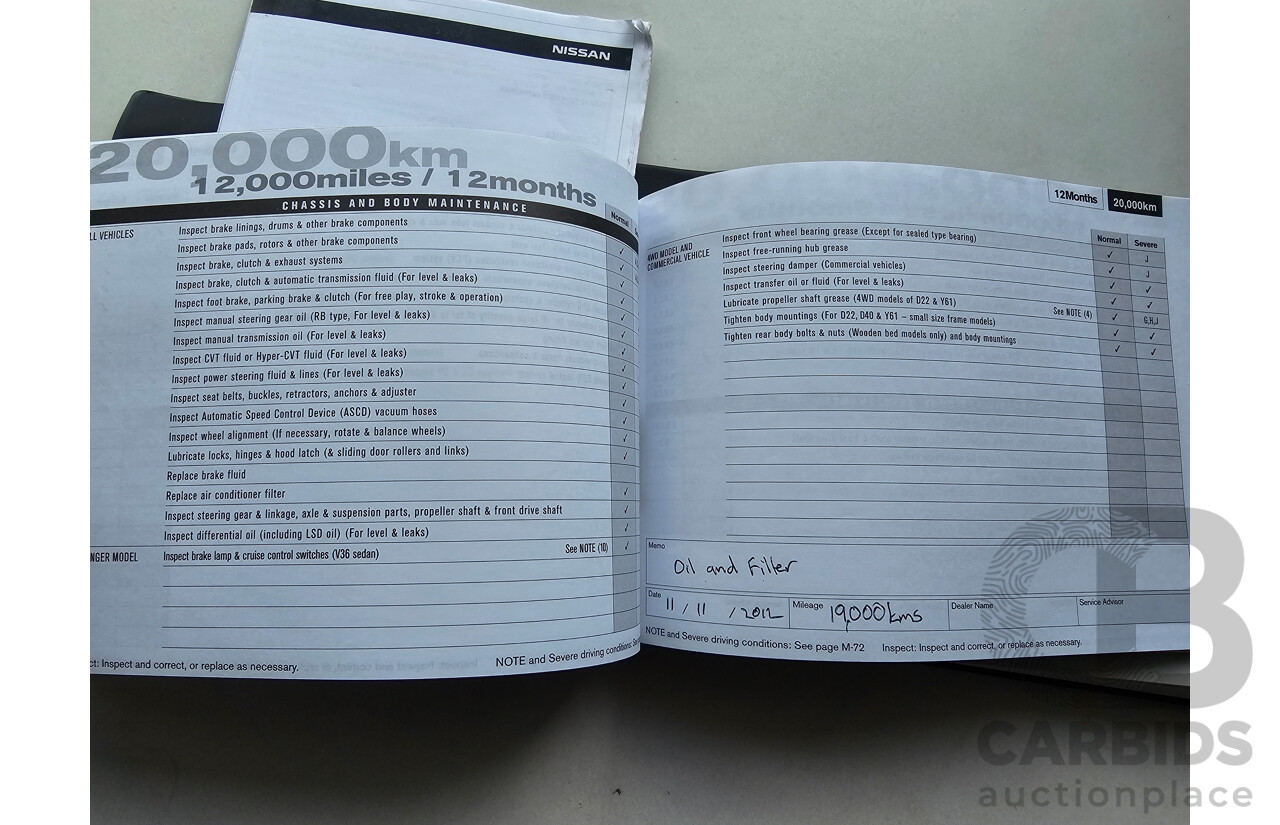 NISSAN
20,000km
12,000miles / 12months
CHASSIS AND BODY MAINTENANCE
Normal
LL VEHICLES
Inspect brake linings, drums & other brake components
✓
Inspect brake pads, rotors & other brake components
✓
Inspect brake, clutch & exhaust systems
✓
Inspect brake, clutch & automatic transmission fluid (For level & leaks)
✓
Inspect foot brake, parking brake & clutch (For free play, stroke & operation)
✓
Inspect manual steering gear oil (RB type, For level & leaks)
✓
Inspect manual transmission oil (For level & leaks)
✓
Inspect CVT fluid or Hyper-CVT fluid (For level & leaks)
✓
Inspect power steering fluid & lines (For level & leaks)
✓
Inspect seat belts, buckles, retractors, anchors & adjuster
✓
Inspect Automatic Speed Control Device (ASCD) vacuum hoses
✓
Inspect wheel alignment (If necessary, rotate & balance wheels)
✓
Lubricate locks, hinges & hood latch (& sliding door rollers and links)
Replace brake fluid
Replace air conditioner filter
✓
Inspect steering gear & linkage, axle & suspension parts, propeller shaft & front drive shaft
✓
Inspect differential oil (including LSD oil) (For level & leaks)
✓
NGER MODEL
Inspect brake lamp & cruise control switches (V36 sedan) See NOTE (10) ✓
ct: Inspect and correct, or replace as necessary.
NOTE and Severe driving conditions: See
12Months 20,000km
Normal Severe
4WD MODEL AND
COMMERCIAL VEHICLE
Inspect front wheel bearing grease (Except for sealed type bearing) ✓ J
Inspect free-running hub grease ✓ J
Inspect steering damper (Commercial vehicles) ✓ ✓
Inspect transfer oil or fluid (For level & leaks) ✓ ✓
Lubricate propeller shaft grease (4WD models of D22 & Y61) See NOTE (4) ✓ G,H,J
Tighten body mountings (For D22, D40 & Y61 – small size frame models) ✓ ✓
Tighten rear body bolts & nuts (Wooden bed models only) and body mountings ✓ ✓
Memo
Oil and Filter
Date 11 / 11 / 2012 Mileage 19,000kms Dealer Name Service Advisor
NOTE and Severe driving conditions: See page M-72 Inspect: Inspect and correct, or replace as necessary.
CB
CARBIDS
auctionplace